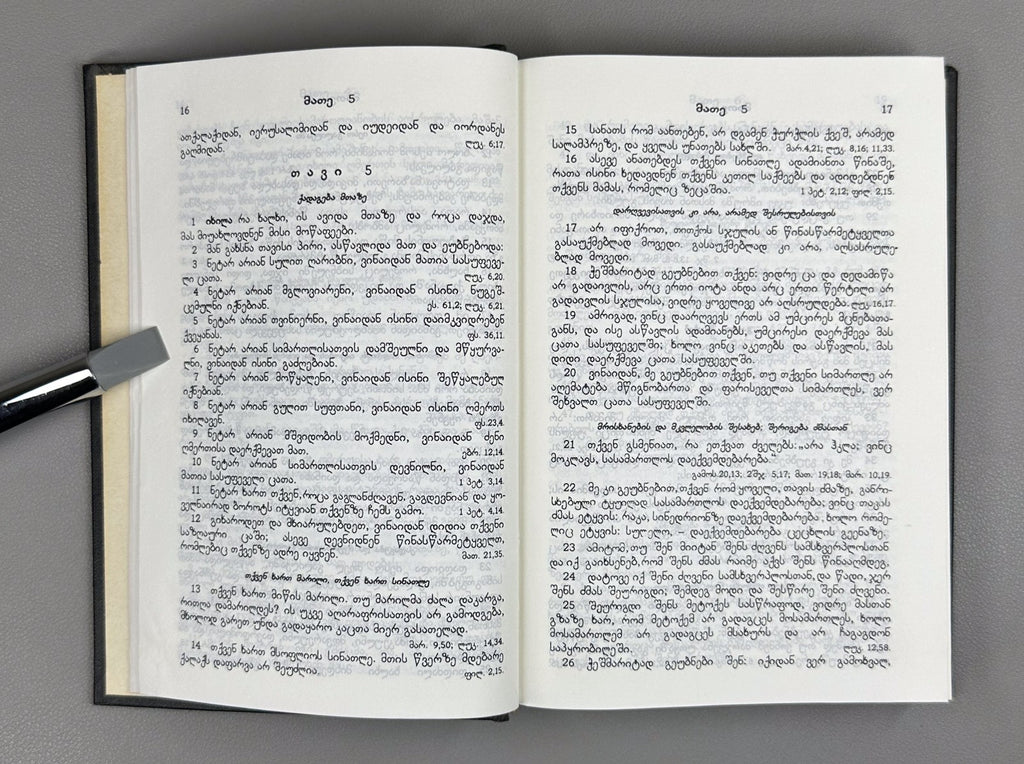 16
მათე 5
ათქალაქიდან, იერუსალიმიდან და იუდეიდან და იორდანეს
გაღმიდან. ლუკ. 6,17.
თავი 5
ქადაგება მთაზე
1 იხილა რა ხალხი, ის ავიდა მთაზე და როცა დაჯდა,
მას მიუახლოვდნენ მისი მოწაფეები.
2 მან გახსნა თავისი პირი, ასწავლიდა მათ და ეუბნებოდა:
3 ნეტარ არიან სულით ღარიბნი, ვინაიდან მათია სასუფევე-
ლი ცათა. ლუკ. 6,20.
4 ნეტარ არიან მგლოვიარენი, ვინაიდან ისინი ნუგეშ-
ცემულნი იქნებიან. ეს. 61,2; ლუკ. 6,21.
5 ნეტარ არიან თვინიერნი, ვინაიდან ისინი დაიმკვიდრებენ
ქვეყანას. ფს. 36,11.
6 ნეტარ არიან სიმართლისათვის დამშეულნი და მწყურვა-
ლნი, ვინაიდან ისინი გაძღებიან.
7 ნეტარ არიან მოწყალენი, ვინაიდან ისინი შეწყალებულ
იქნებიან.
8 ნეტარ არიან გულით სუფთანი, ვინაიდან ისინი ღმერთს
იხილავენ. ფს.23,4.
9 ნეტარ არიან მშვიდობის მოქმედნი, ვინაიდან ძენი
ღმერთისა დაერქმევათ მათ. ებრ. 12,14.
10 ნეტარ არიან სიმართლისათვის დევნილნი, ვინაიდან
მათია სასუფეველი ცათა. 1 პეტ. 3,14.
11 ნეტარ ხართ თქვენ,როცა გაგლანძღავენ, გაგდევნიან და ყო-
ველნაირად ბოროტს იტყვიან თქვენზე ჩემს გამო. 1 პეტ. 4,14.
12 გიხაროდეთ და მხიარულებდეთ, ვინაიდან დიდია თქვენი
საზღაური ცაში; ასევე დევნიდნენ წინასწარმეტყველთ,
რომლებიც თქვენზე ადრე იყვნენ. მათ. 21,35.
თქვენ ხართ მარილი, თქვენ ხართ სინათლე
13 თქვენ ხართ მიწის მარილი. თუ მარილმა ძალა დაკარგა,
რითღა დამარილდეს? ის უკვე აღარაფრისათვის არ გამოდგება,
მხოლოდ გარეთ უნდა გადაყარო კაცთა მიერ გასათელად.
მარ. 9,50; ლუკ. 14,34.
14 თქვენ ხართ მსოფლიოს სინათლე. მთის წვერზე მდებარე
ქალაქს დაფარვა არ შეუძლია. ფილ. 2,15.
მათე 5
17
15 სანათს რომ აანთებენ, არ დგამენ ჭურჭლის ქვეშ, არამედ
სალამპრეზე, და ყველას უნათებს სახლში. მარ.4,21; ლუკ. 8,16; 11,33.
16 ასევე ანათებდეს თქვენი სინათლე ადამიანთა წინაშე,
რათა ისინი ხედავდნენ თქვენს კეთილ საქმეებს და ადიდებდნენ
თქვენს მამას, რომელიც ზეცაშია. 1 პეტ. 2,12; ფილ. 2,15.
დარღვევისათვის კი არა, არამედ შესრულებისთვის
17 არ იფიქროთ, თითქოს სჯულის ან წინასწარმეტყველთა
გასაუქმებლად მოვედი. გასაუქმებლად კი არა, აღსასრულე-
ბლად მოვედი.
18 ჭეშმარიტად გეუბნებით თქვენ: ვიდრე ცა და დედამიწა
არ გადაივლის, არც ერთი იოტა ანდა არც ერთი წერტილი არ
გადაივლის სჯულისა, ვიდრე ყოველივე არ აღსრულდება. ლუკ. 16,17.
19 ამრიგად, ვინც დაარღვევს ერთს ამ უმცირეს მცნებათა-
განს, და ისე ასწავლის ადამიანებს, უმცირესი დაერქმევა მას
ცათა სასუფეველში; ხოლო ვინც აკეთებს და ასწავლის, მას
დიდი დაერქმევა ცათა სასუფეველში.
20 ვინაიდან, მე გეუბნებით თქვენ, თუ თქვენი სიმართლე არ
აღემატება მწიგნობართა და ფარისეველთა სიმართლეს, ვერ
შეხვალთ ცათა სასუფეველში.
მრისხანების და მკვლელობის შესახებ; შერიგება ძმასთან
21 თქვენ გსმენიათ, რა ეთქვათ ძველებს: „არა ჰკლა; ვინც
მოკლავს, სასამართლოს დაექვემდებარება.“
გამოს.20,13; 2შჯ. 5,17; მათ. 19,18; მარ. 10,19.
22 მე კი გეუბნებით,თქვენ რომ ყოველი, თავის ძმაზე, განრი-
სხებული ტყუილად სასამართლოს დაექვემდებარება; ვინც თავის
ძმას ეტყვის: რაკა, სინედრიონზე დაექვემდებარება, ხოლო რომე-
ლიც ეტყვის: სულელო, – დაექვემდებარება ცეცხლის გეენაზე.
23 ამიტომ,თუ შენ მიიტან შენს ძღვენს სამსხვერპლოსთან
და იქ გაიხსენებ,რომ შენს ძმას რაიმე აქვს შენს წინააღმდეგ,
24 დატოვე იქ შენი ძღვენი სამსხვერპლოსთან,და წადი, ჯერ
შენს ძმას შეურიგდი; შემდეგ მოდი და შესწირე შენი ძღვენი.
25 შეურიგდი შენს მეტოქეს სასწრაფოდ, ვიდრე მასთან
გზაზე ხარ, რომ მეტოქემ არ გადაგცეს მოსამართლეს, ხოლო
მოსამართლემ არ გადაგცეს მსახურს და არ ჩაგაგდონ
საპყრობილეში. ლუკ. 12,58.
26 ჭეშმარიტად გეუბნები შენ: იქიდან ვერ გამოხვალ,